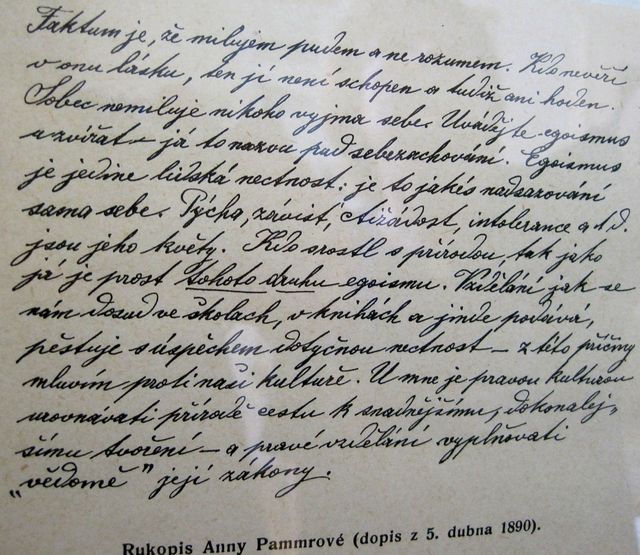 Faktum je, že milujem pudem a ne rozumem. Kdo nevěří
v onu lásku, ten jí není schopen a tudíž ani hoden.
Sobec nemiluje nikoho vyjma sebe. Uvádějte egoismus
u zvířat – já to nazvu pud sebezachování. Egoismus
je jedine lidská nectnost: je to jakés nadsazování
sama sebe. Pýcha, závist, ctižádost, intolerance a t.d.
jsou jeho květy. Kdo srostl s přírodou, tak jako
já je prost tohoto druhu egoismu. Vzdělání jak se
nám dosud ve školách, v knihách a jinde podává,
pěstuje s úspěchem dotyčnou nectnost – z této příčiny
mluvím proti naší kultuře. U mne je pravou kulturou
urovnávati přírodě cestu k snadnějšímu, dokonalej-
šímu tvoření – a pravé vzdělání vyplňovati
„vědomě" její zákony.
Rukopis Anny Pammrové (dopis z 5. dubna 1890).